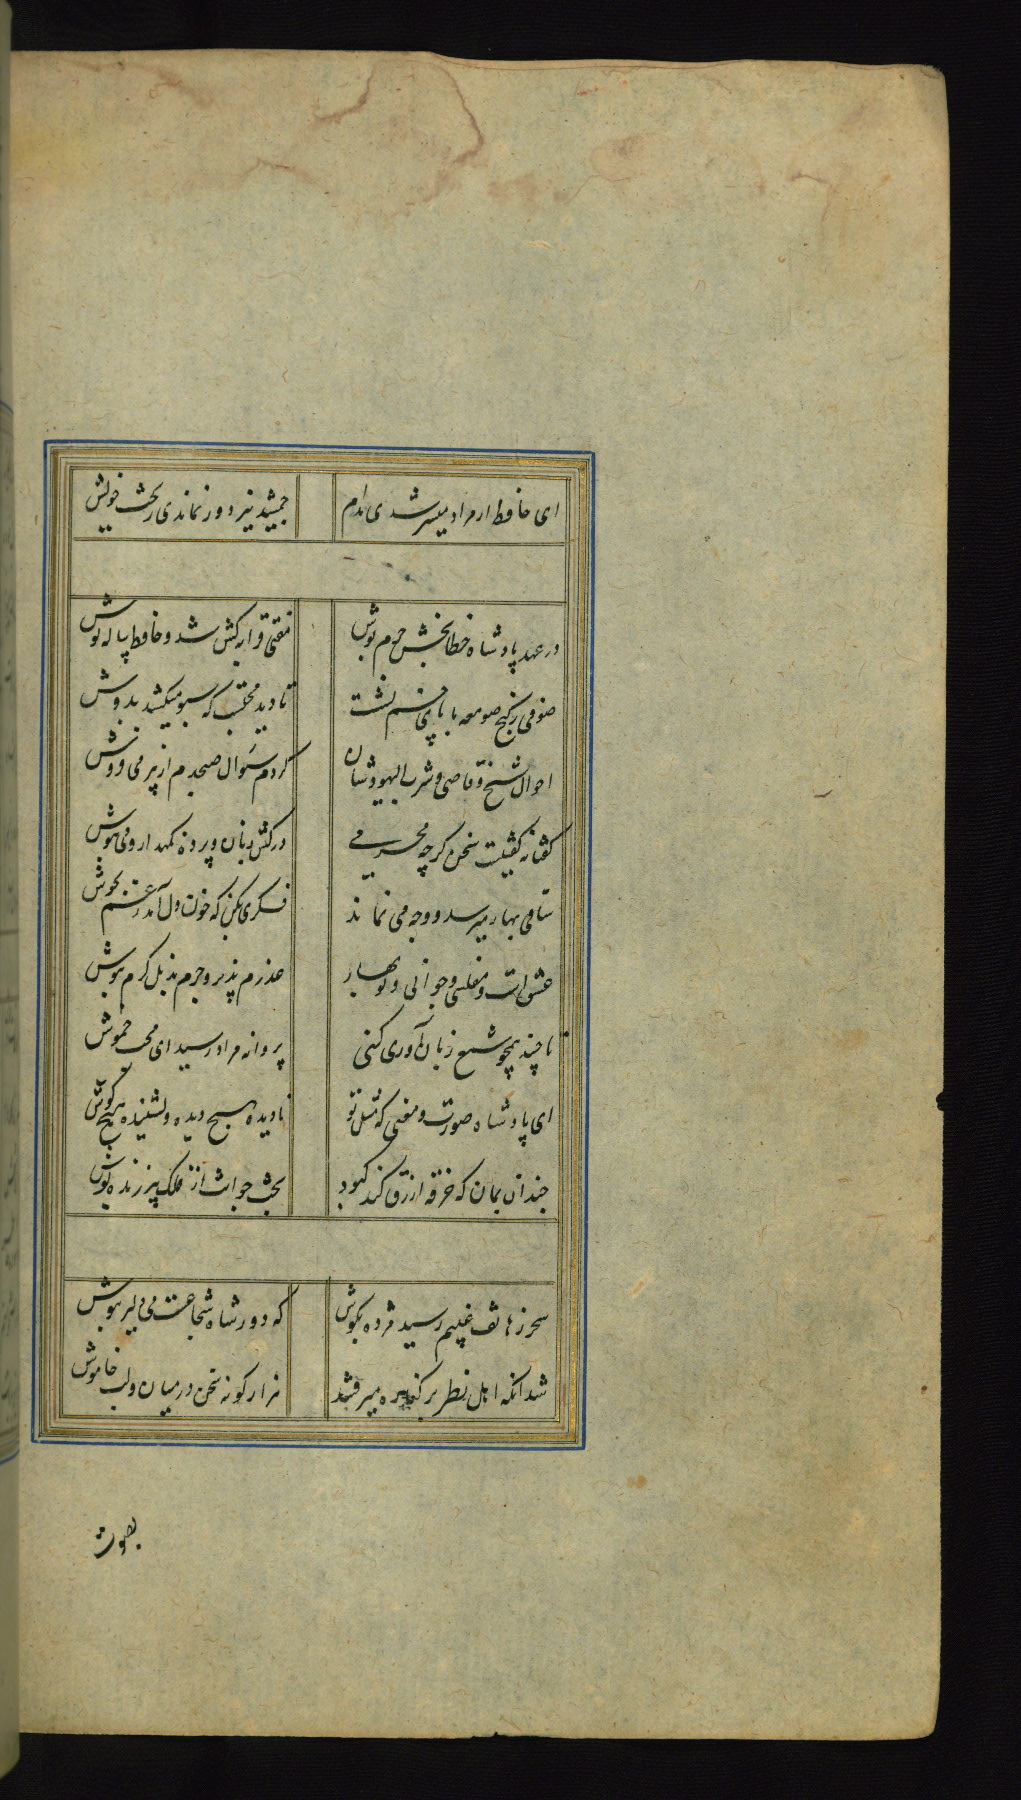 ای حافظ ار مراد میسر شدی مدام جمشید نیز دور نماندی ز تخت خویش
در عهد پادشاه خطا بخش جرم پوش مفتی قرابه کش شد و حافظ پیاله نوش
صوفی ز کنج صومعه با پای خم نشست تا دید محتسب که سبو میکشد بدوش
احوال شیخ و قاضی و شرب الیهودشان کردم سؤال صبحدم از پیر می فروش
گفتا نه گفتنیست سخن گرچه محرمی درکش زبان و پرده نگهدار و می بنوش
ساقی بهار میرسد و وجه می نماند فکری بکن که خون دل آمد ز غم بجوش
عشق است و مفلسی و جوانی و نوبهار عذرم پذیر و جرم بذیل کرم بپوش
تا چند همچو شمع زبان آوری کنی پروانه مراد رسید ای محب خموش
ای پادشاه صورت و معنی که مثل تو نادیده هیچ دیده و نشنیده هیچ گوش
چندان بمان که خرقه ازرق کند کبود بخت جوانت از فلک پیر ژنده پوش
سحر ز هاتف غیبم رسید مژده بگوش که دور شاه شجاعست می دلیر بنوش
شد آنکه اهل نظر بر کناره میرفتند هزار گونه سخن در میان و لب خاموش
بصوت